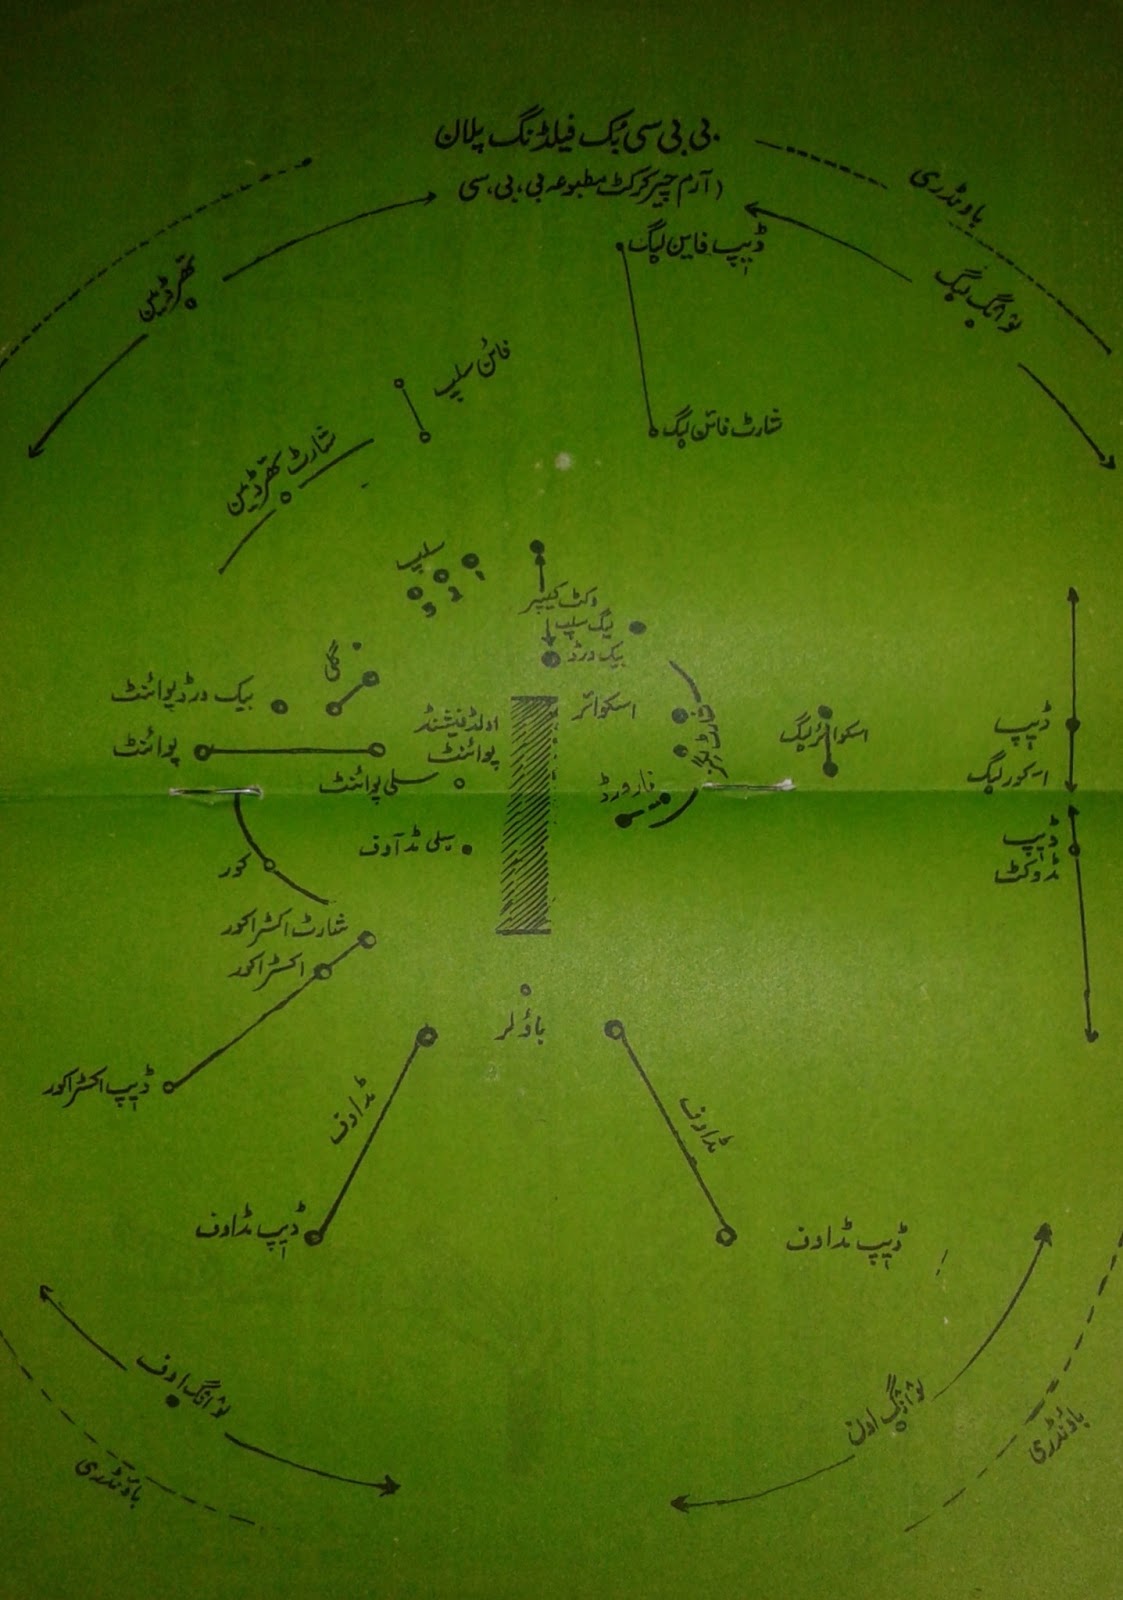 بی بی سی بک فیلڈنگ پلان
(آرم چیر کرکٹ مطبوعہ بی، بی، سی
باونڈری
ڈیپ فاین لیگ
لونگ لیگ
تھرڈ مین
فائن سلپ
شارٹ فائن لیگ
شارٹ تھرڈ مین
سلپ
1
2
3
وکٹ کیپر
لیگ سلپ
بیک ورڈ
گلی
بیک ورڈ پوائنٹ
اولڈ فیشنڈ
پوائنٹ
پوائنٹ
اسکوائر
شارٹ لیگز
اسکوائر لیگ
ڈیپ
اسکور لیگ
سلی پوائنٹ
فارورڈ
ڈیپ
مڈوکٹ
سلی مڈآوف
کور
شارٹ اکسٹراکور
اکسٹراکور
باؤلر
ڈیپ اکسٹراکور
مڈاوف
مڈاوف
ڈیپ مڈاوف
ڈیپ مڈاوف
لونگ اوف
لونگ اون
باؤنڈری
باؤنڈری